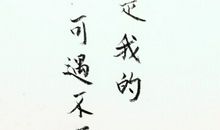 是我的
可遇不